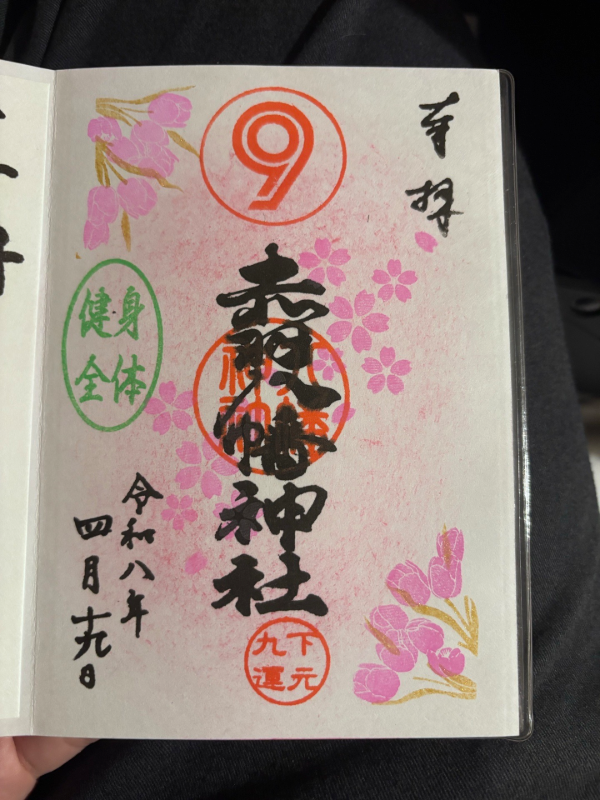 奉拝
9
赤羽八幡神社
下元
九運
身体
健全
令和八年
四月十九日